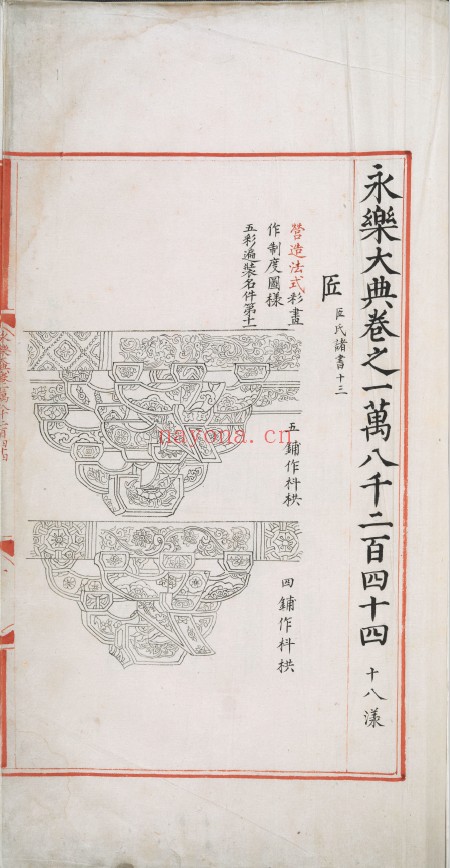 永樂大典卷之一萬八千二百四十四 十八漾
匠 匠氏諸書十三
營造法式彩畫
作制度圖樣
五彩遍裝名件第十一
五鋪作枓栱
四鋪作枓栱
nayona.cn